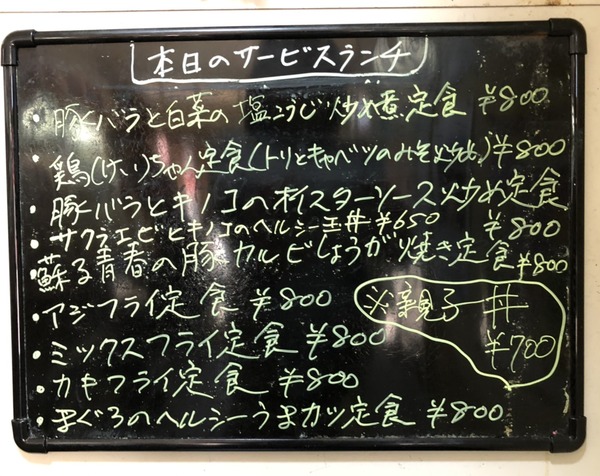 本日のサービスランチ
・豚バラと白菜の塩こうじ炒め煮定食 ¥800
・鶏(けい)ちゃん定食(トリとキャベツのみそ炒め)¥800
・豚バラとキノコのオイスターソース炒め定食 ¥800
・サクラエビとキノコのヘルシー玉丼 ¥650
・蘇る青春の豚カルビしょうが焼き定食 ¥800
・アジフライ定食 ¥800
・ミックスフライ定食 ¥800
・カキフライ定食 ¥800
・まぐろのヘルシーうまカツ定食 ¥800
※親子丼
¥700